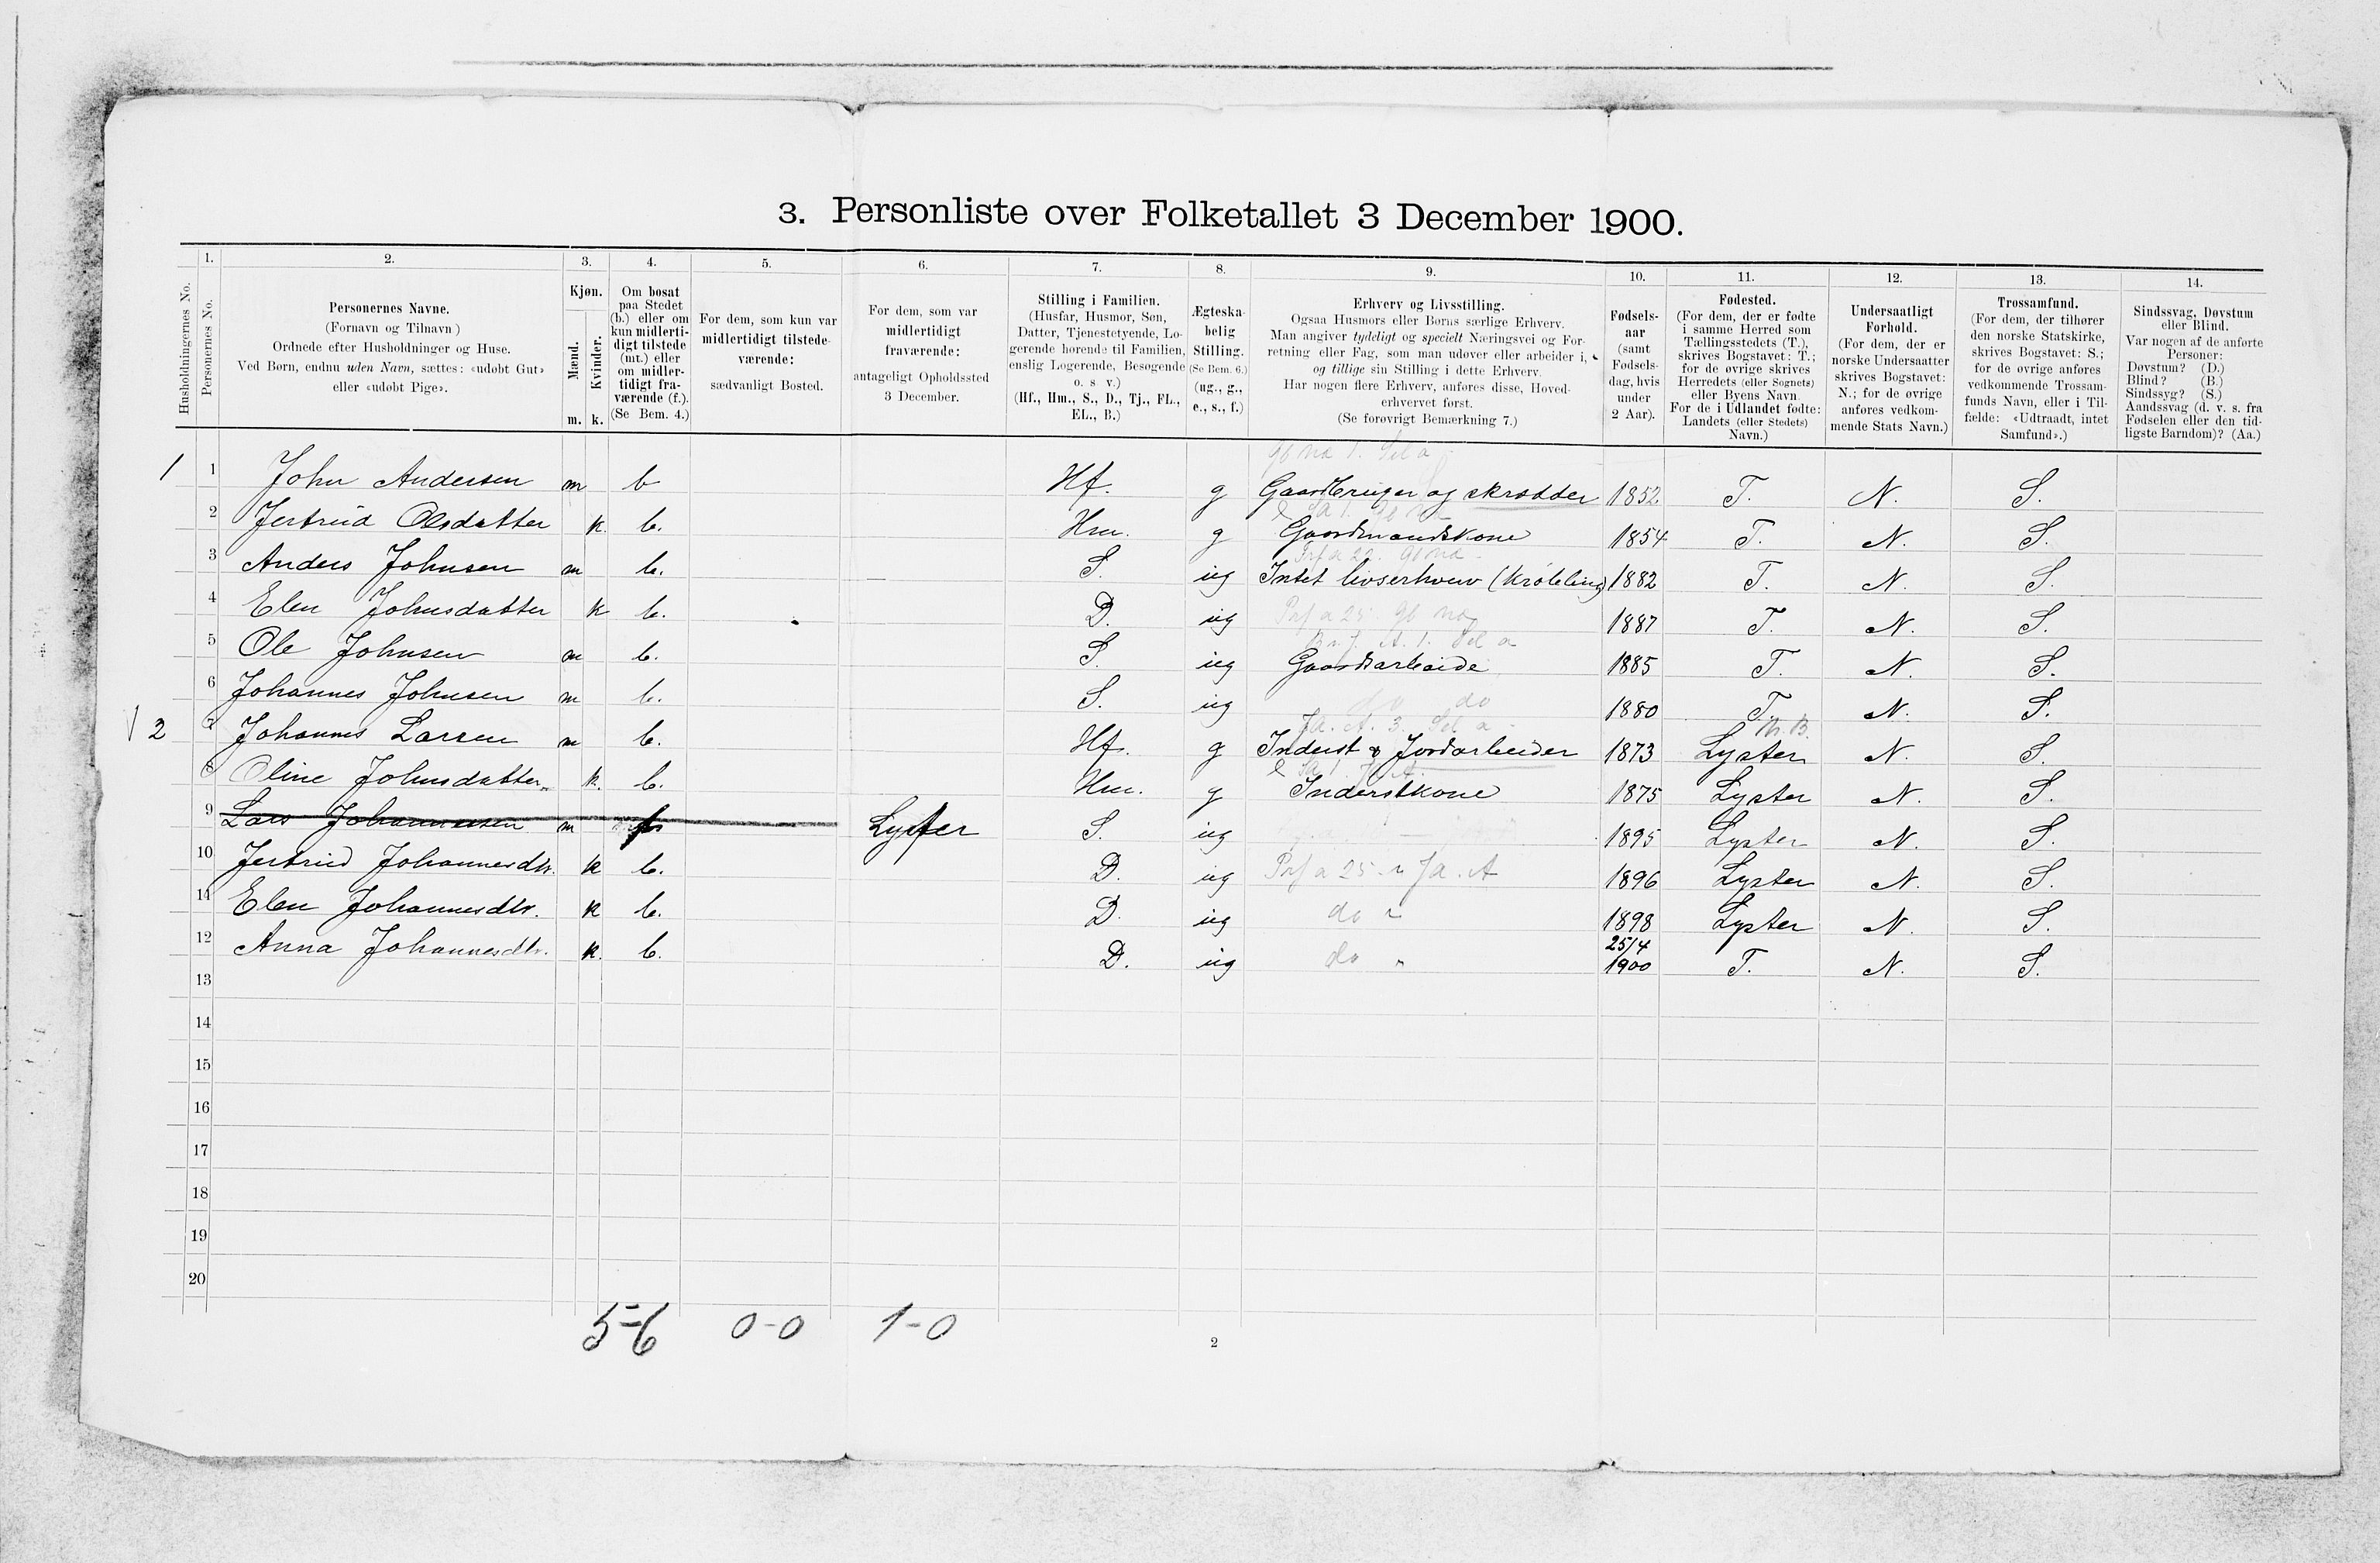 3. Personliste over Folketallet 3 December 1900.
1. 2. 3. 4. 5. 6. 7. 8. 9. 10. 11. 12. 13. 14.
Husholdningernes No.
Personernes No.
Personernes Navne.
(Fornavn og Tilnavn)
Ordnede efter Husholdninger og Huse.
Ved Børn, endnu uden Navn, sættes: «udøbt Gut»
eller «udøbt Pige».
Kjøn.
Mænd.
Kvinder.
m. k.
Om bosat
paa Stedet
(b.) eller om
kun midlerti-
digt tilstede
(mt.) eller
om midler-
tidigt fra-
værende (f.).
(Se Bem. 4.)
For dem, som kun var
midlertidigt tilstede-
værende:
sædvanligt Bosted.
For dem, som var
midlertidigt
fraværende:
antageligt Opholdssted
3 December.
Stilling i Familien.
(Husfar, Husmor, Søn,
Datter, Tjenestetyende, Lo-
gerende hørende til Familien,
enslig Logerende, Besøgende
o. s v.)
(Hf., Hm., S., D., Tj., FL.,
EL., B.)
Ægteska-
belig
Stilling.
(Se Bem. 6.)
(ug., g.,
e., s., f.)
Erhverv og Livsstilling.
Ogsaa Husmors eller Børns særlige Erhverv.
Man angiver tydeligt og specielt Næringsvei og For-
retning eller Fag, som man udøver eller arbeider i,
og tillige sin Stilling i dette Erhverv.
Har nogen flere Erhverv, anføres disse, Hoved-
erhvervet først.
(Se forøvrigt Bemærkning 7.)
Fødsels-
aar
(samt
Fødsels-
dag, hvis
under
2 Aar).
Fødested.
(For dem, der er fødte
i samme Herred som
Tællingsstedets (T.),
skrives Bogstavet: T.;
for de øvrige skrives
Herredets (eller Sognets)
eller Byens Navn.
For de i Udlandet fødte:
Landets (eller Stedets)
Navn.)
Undersaatligt
Forhold.
(For dem, der er
norske Undersaatter
skrives Bogstavet:
N.; for de øvrige
anføres vedkom-
mende Stats Navn.)
Trossamfund.
(For dem, der tilhører
den norske Statskirke,
skrives Bogstavet: S.;
for de øvrige anføres
vedkommende Trossam-
funds Navn, eller i Til-
fælde: «Udtraadt, intet
Samfund».)
Sindssvag, Døvstum
eller Blind.
Var nogen af de anførte
Personer:
Døvstum? (D.)
Blind? (B.)
Sindssyg? (S.)
Aandssvag (d. v. s. fra
Fødselen eller den tid-
ligste Barndom)? (Aa.)
1 1 John Andersen m b Hf. g Gaardbruger og skrædder 1852 T. N. S.
2 Jertrud Olsdatter k. b. Hm. g Gaardmandskone 1854 T. N. S.
3 Anders Johnsen m b. S. ug Intet livserhverv (Krøbeling) 1882 T. N. S.
4 Elen Johnsdatter k b. D. ug 1887 T. N. S.
5 Ole Johnsen m b. S. ug Gaardsarbeide 1885 T. N. S.
6 Johannes Johnsen m b. S. ug do do 1880 T. N. S.
2 7 Johannes Larsen m b. Hf. g Inderst & Jordarbeider 1873 Lyster N. S.
8 Oline Johnsdatter k. b. Hm. g Inderstkone 1875 Lyster N. S.
9 Lars Johannesen m f Lyster S. ug 1895 Lyster N. S.
10 Jertrud Johannesdtr. k b. D. ug 1896 Lyster N. S.
11 Elen Johannesdtr. k b. D. ug do " 1898 Lyster N. S.
12 Anna Johannesdtr. k. b. D. ug do " 25/4 1900 T. N. S.
13
14
15
16
17
18
19
20
5-6 0-0 1-0
2